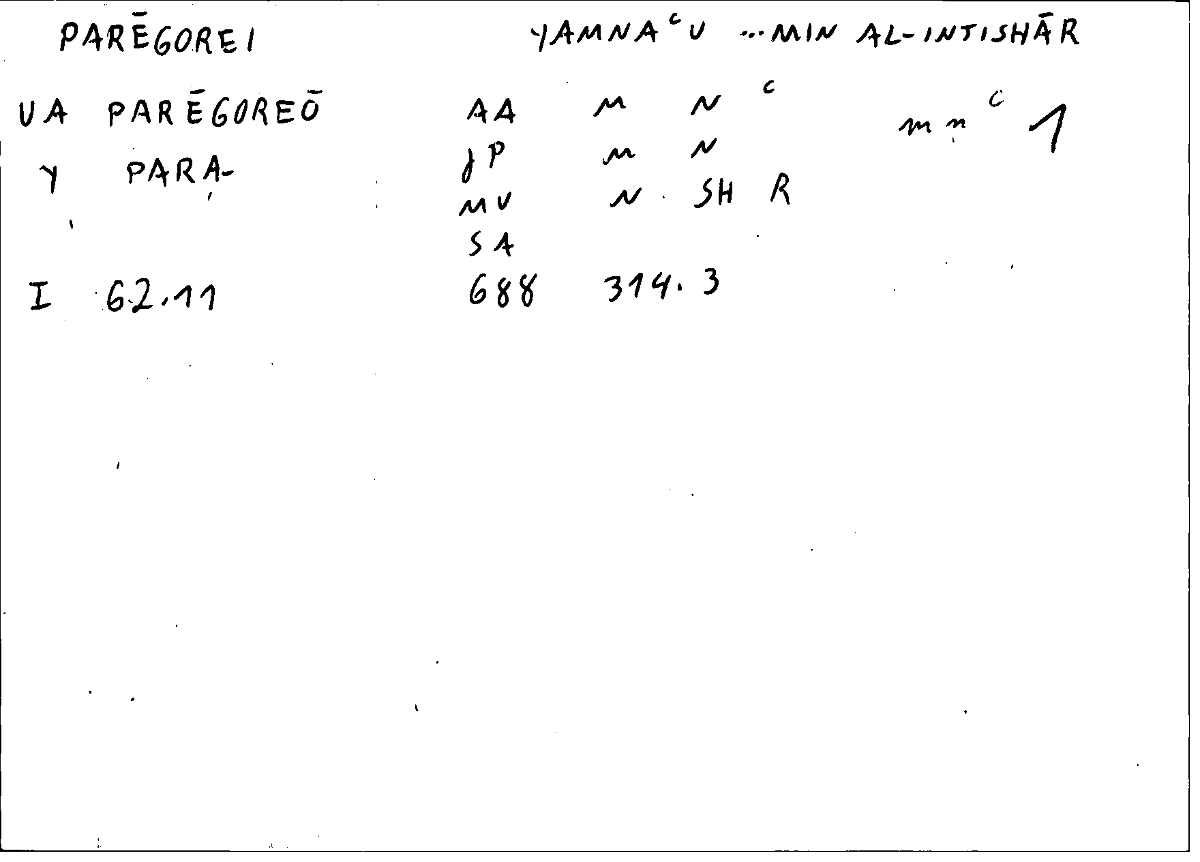 PARĒGOREI YAMNAᶜU ...MIN AL-INTISHĀR
UA PARĒGOREŌ AA M N ᶜ mnᶜ 1
Y PARA- JP M N
MU N SH R
SA
I 62.11 688 314.3